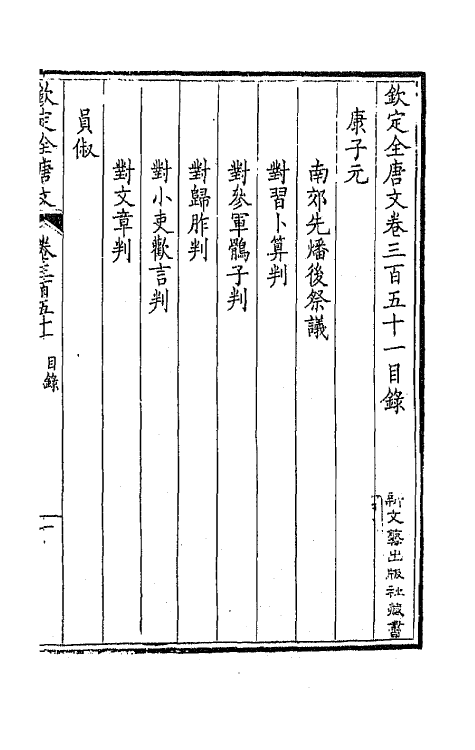 欽定全唐文卷三百五十一目錄
康子元
南郊先燔後祭議
對習卜算判
對參軍鶻子判
對歸胙判
對小吏歡言判
對文章判
員俶
欽定全唐文 卷三百五十一 目錄 一
新文藝出版社藏書